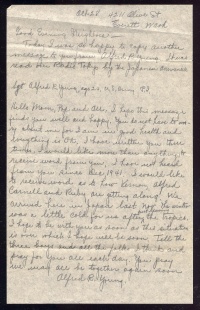 Oct-28 4211 Alver St
Everett Wash
Good Evening
Today I was so happy to copy another
message to you from Alfred R. Young. I have
read over Radio Tokyo by the Japanese announcer
Sgt Alfred R. Young, age 24, U.S. Army, P.I.
Hello Mom, Pop and All. I hope this message
finds you well and happy. You do not have to wor-
ry about me for I am in good health and
everything is OK. I have written you three
times. I would like more than anything to
receive word from you, I have not heard
from you since Dec. 1941. I would like
to receive word as to how Vernon, Alfred
Carnell and Ruby are getting along. We
arrived here in Japan last Nov. The winter
was a little cold for me after the tropics.
I hope to be with you as soon as this situation
is over which I hope will be soon. Tell the
three boys and all the folks hello and
pray for you all each day. You pray
we may all be together again soon.
Alfred R. Young.